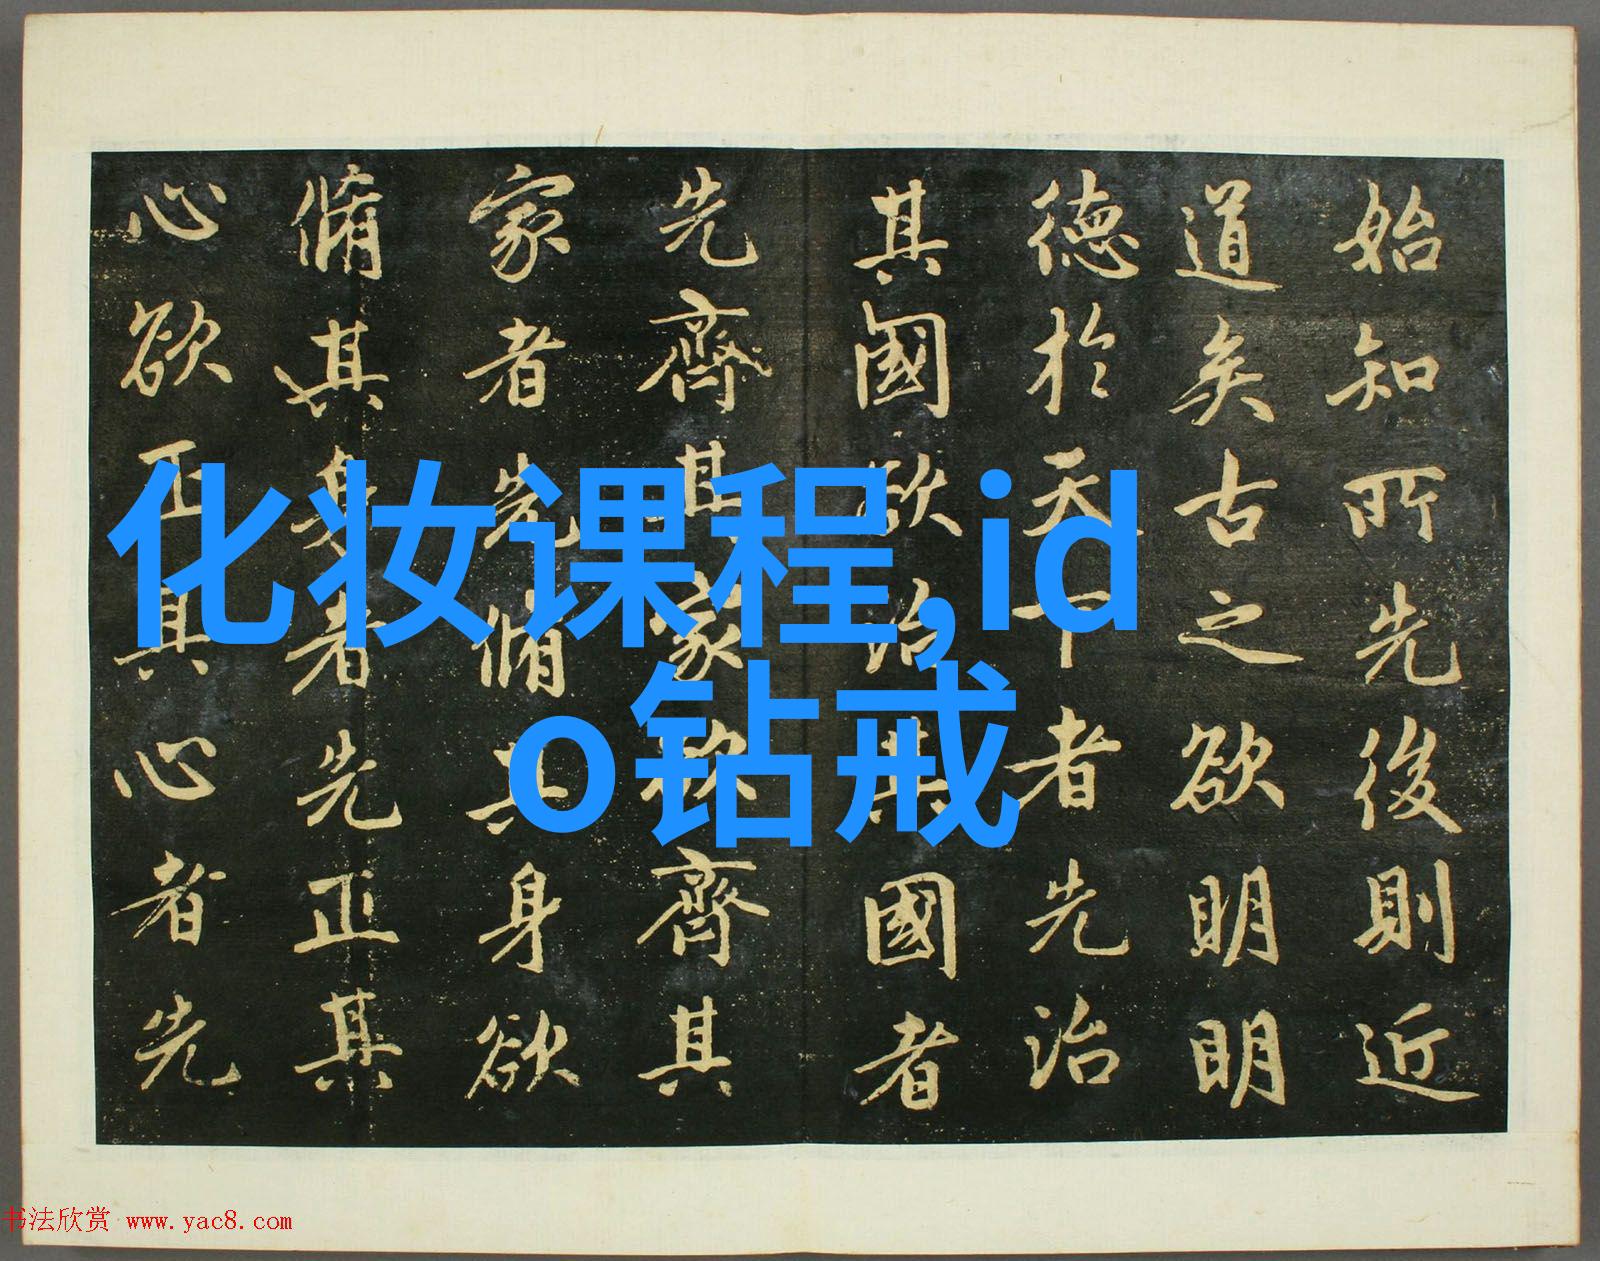 始知所先後則近
道矣古之欲明明
德於天下者先治
其國欲治其國者
先齊其家欲齊其
家者先脩其身欲
脩其身者先正其
心欲正其心者先
化妆课程,id
o钻戒
书法欣赏 www.yac8.com